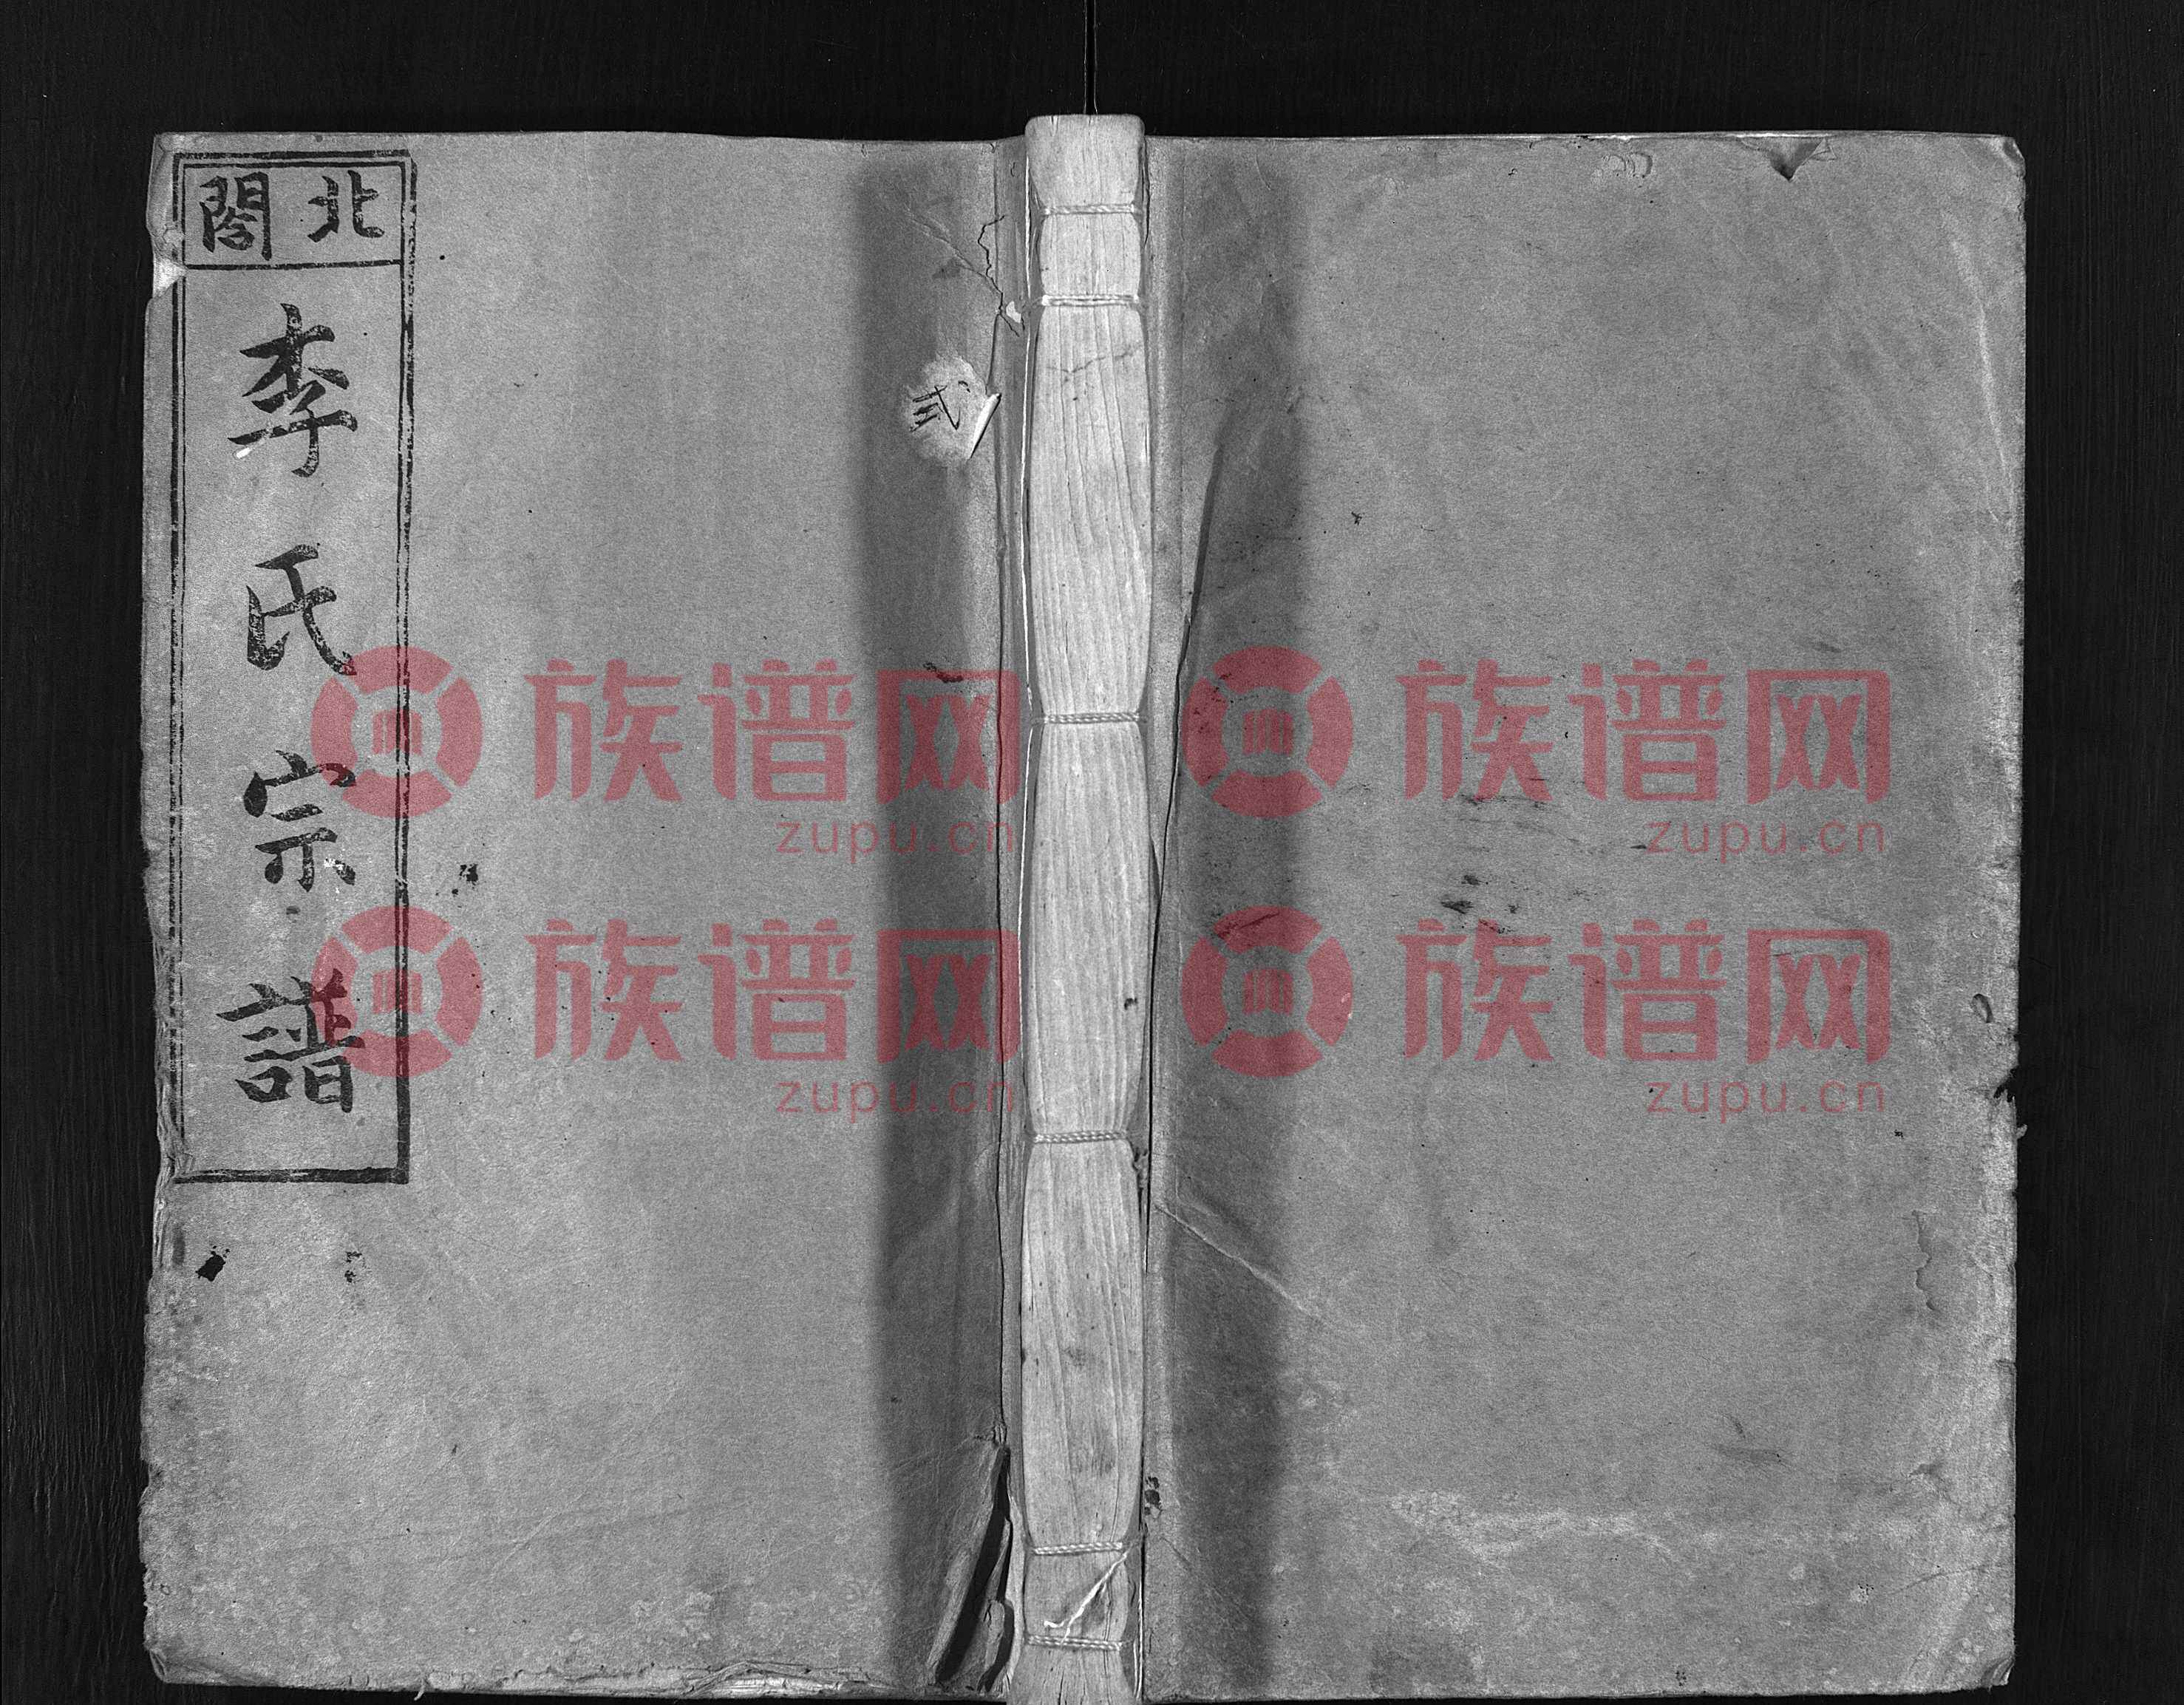 北閣
李氏宗譜
弎
族谱网
zupu.cn
族谱网
zupu.cn
族谱网
zupu.cn
族谱网
zupu.cn